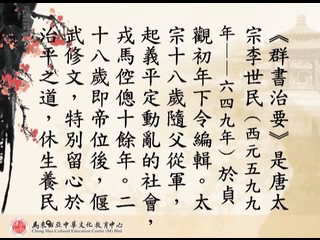 《群書治要》是唐太
宗李世民（西元五九九
年──六四九年）於貞
觀初年下令編輯。太
宗十八歲隨父從軍，
起義平定動亂的社會，
戎馬倥傯十餘年。二
十八歲即帝位後，偃
武修文，特別留心於
治平之道，休生養民。
馬來西亞中華文化教育中心
Chung Hua Cultural Education Centre (M) Bhd